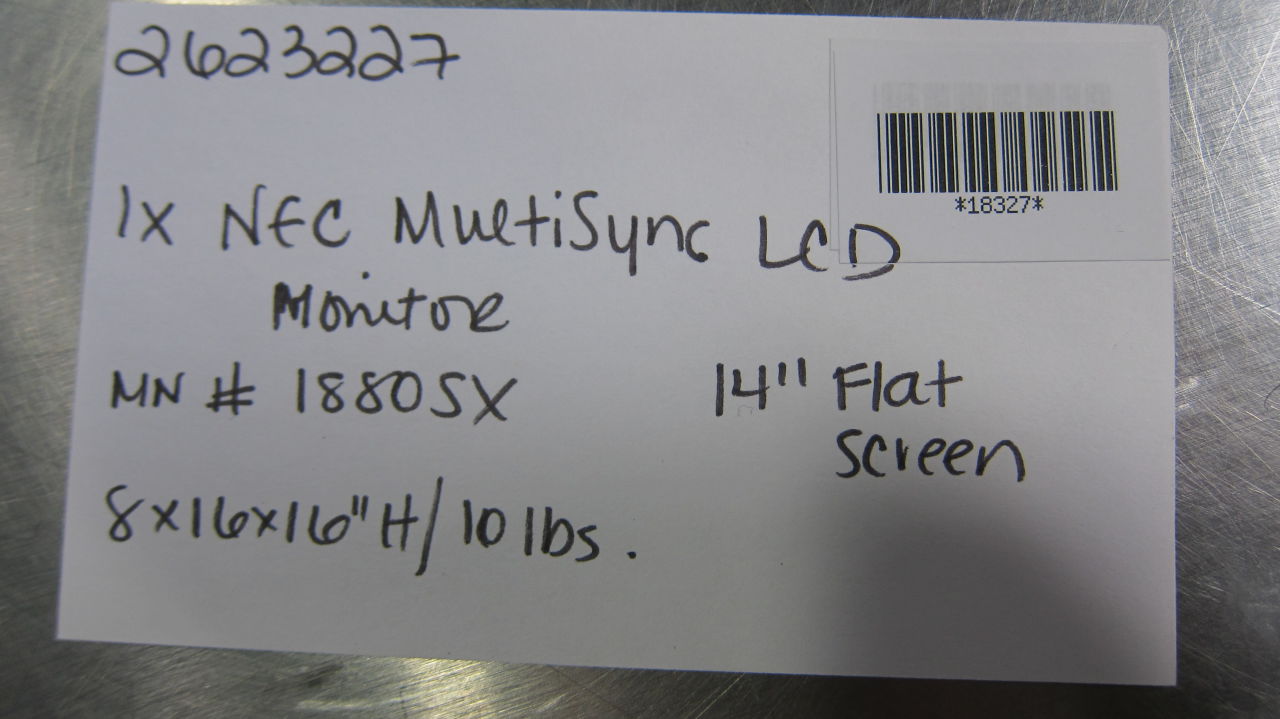 2623227
*18327*
1x NEC MultiSync LCD
Monitor
MN # 1880SX
14" Flat
Screen
8x16x16"H/10 lbs.